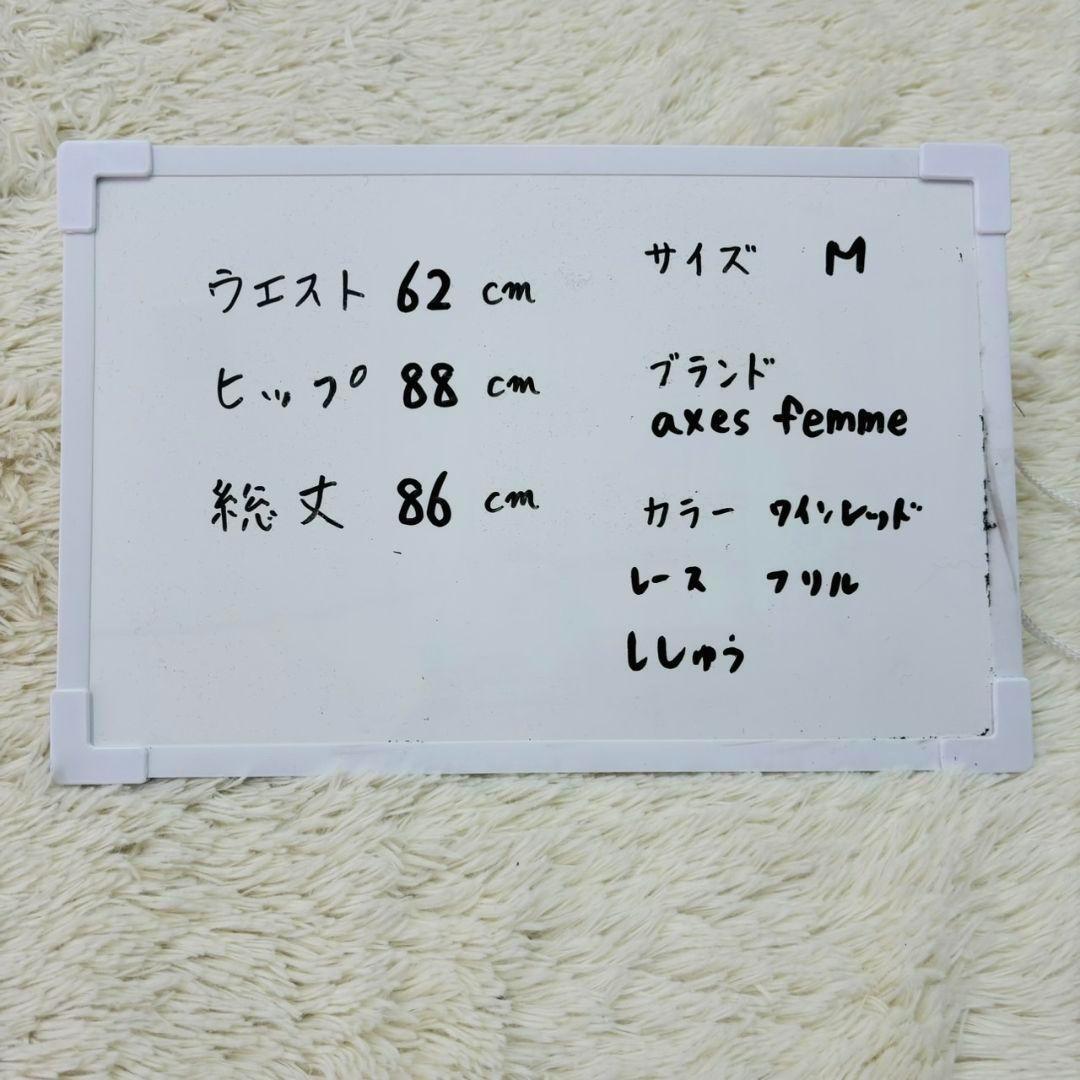 ウエスト 62 cm
ヒップ 88 cm
総丈 86 cm
サイズ M
ブランド
axes femme
カラー ワインレッド
レース フリル
ししゅう